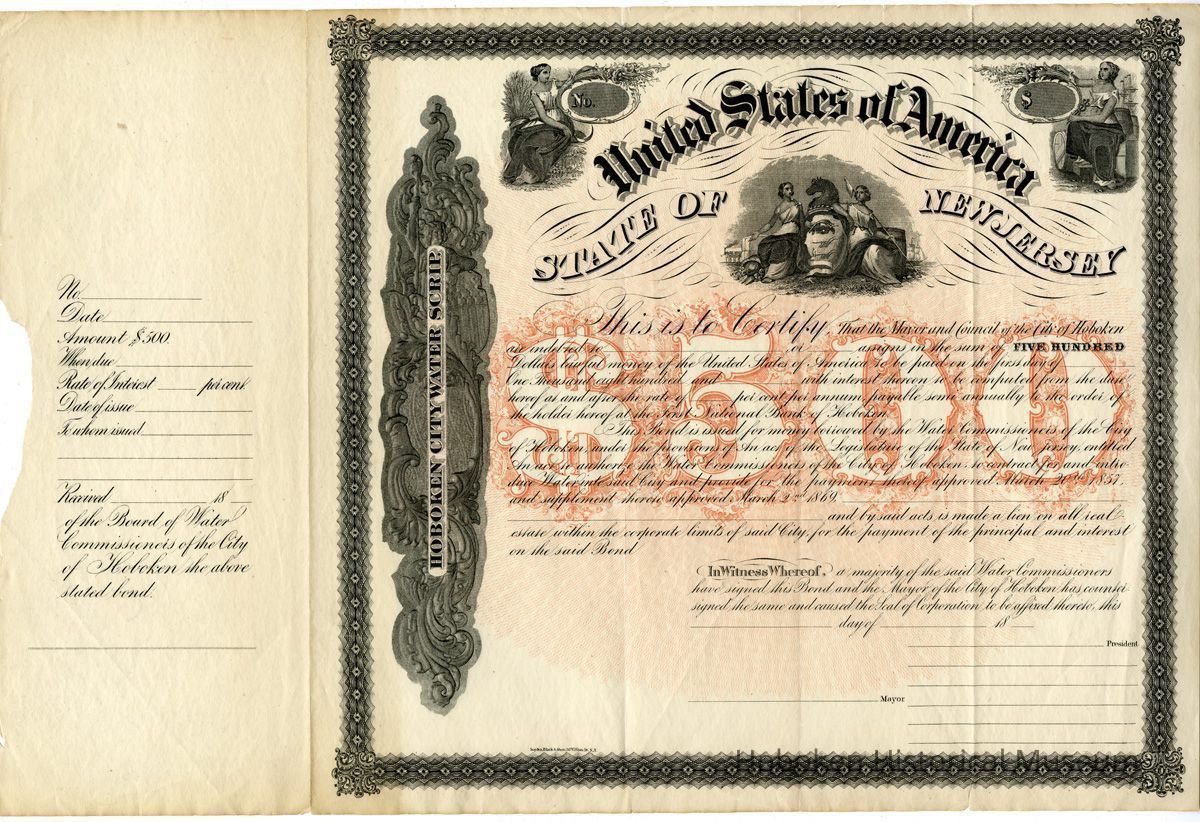 No.
Date
Amount $500.
When due
Rate of Interest per cent.
Date of issue
To whom issued
Received 18
of the Board of Water
Commissioners of the City
of Hoboken the above
stated bond.
HOBOKEN CITY WATER SCRIP.
No.
$
United States of America
STATE OF NEW JERSEY
$500
This is to Certify, That the Mayor and Council of the City of Hoboken
are indebted to or assigns in the sum of FIVE HUNDRED
Dollars lawful money of the United States of America to be paid on the first day of
One Thousand eight hundred and with interest thereon to be computed from the date
hereof at and after the rate of per cent per annum payable semi annually to the order of
the holder hereof at the First National Bank of Hoboken.
This Bond is issued for money borrowed by the Water Commissioners of the City
of Hoboken, under the provisions of An act of the Legislature of the State of New Jersey, entitled
An act to authorize the Water Commissioners of the City of Hoboken to contract for and intro-
duce Water into said City and provide for the payment thereof approved March 20th 1857,
and supplement thereto approved March 2nd 1869,
and by said acts is made a lien on all real
estate within the corporate limits of said City, for the payment of the principal and interest
on the said Bond
In Witness Whereof, a majority of the said Water Commissioners
have signed this Bond and the Mayor of the City of Hoboken has counter-
signed the same and caused the Seal of Corporation to be affixed thereto, this
day of 18
President
Mayor
Hoboken Historical Museum